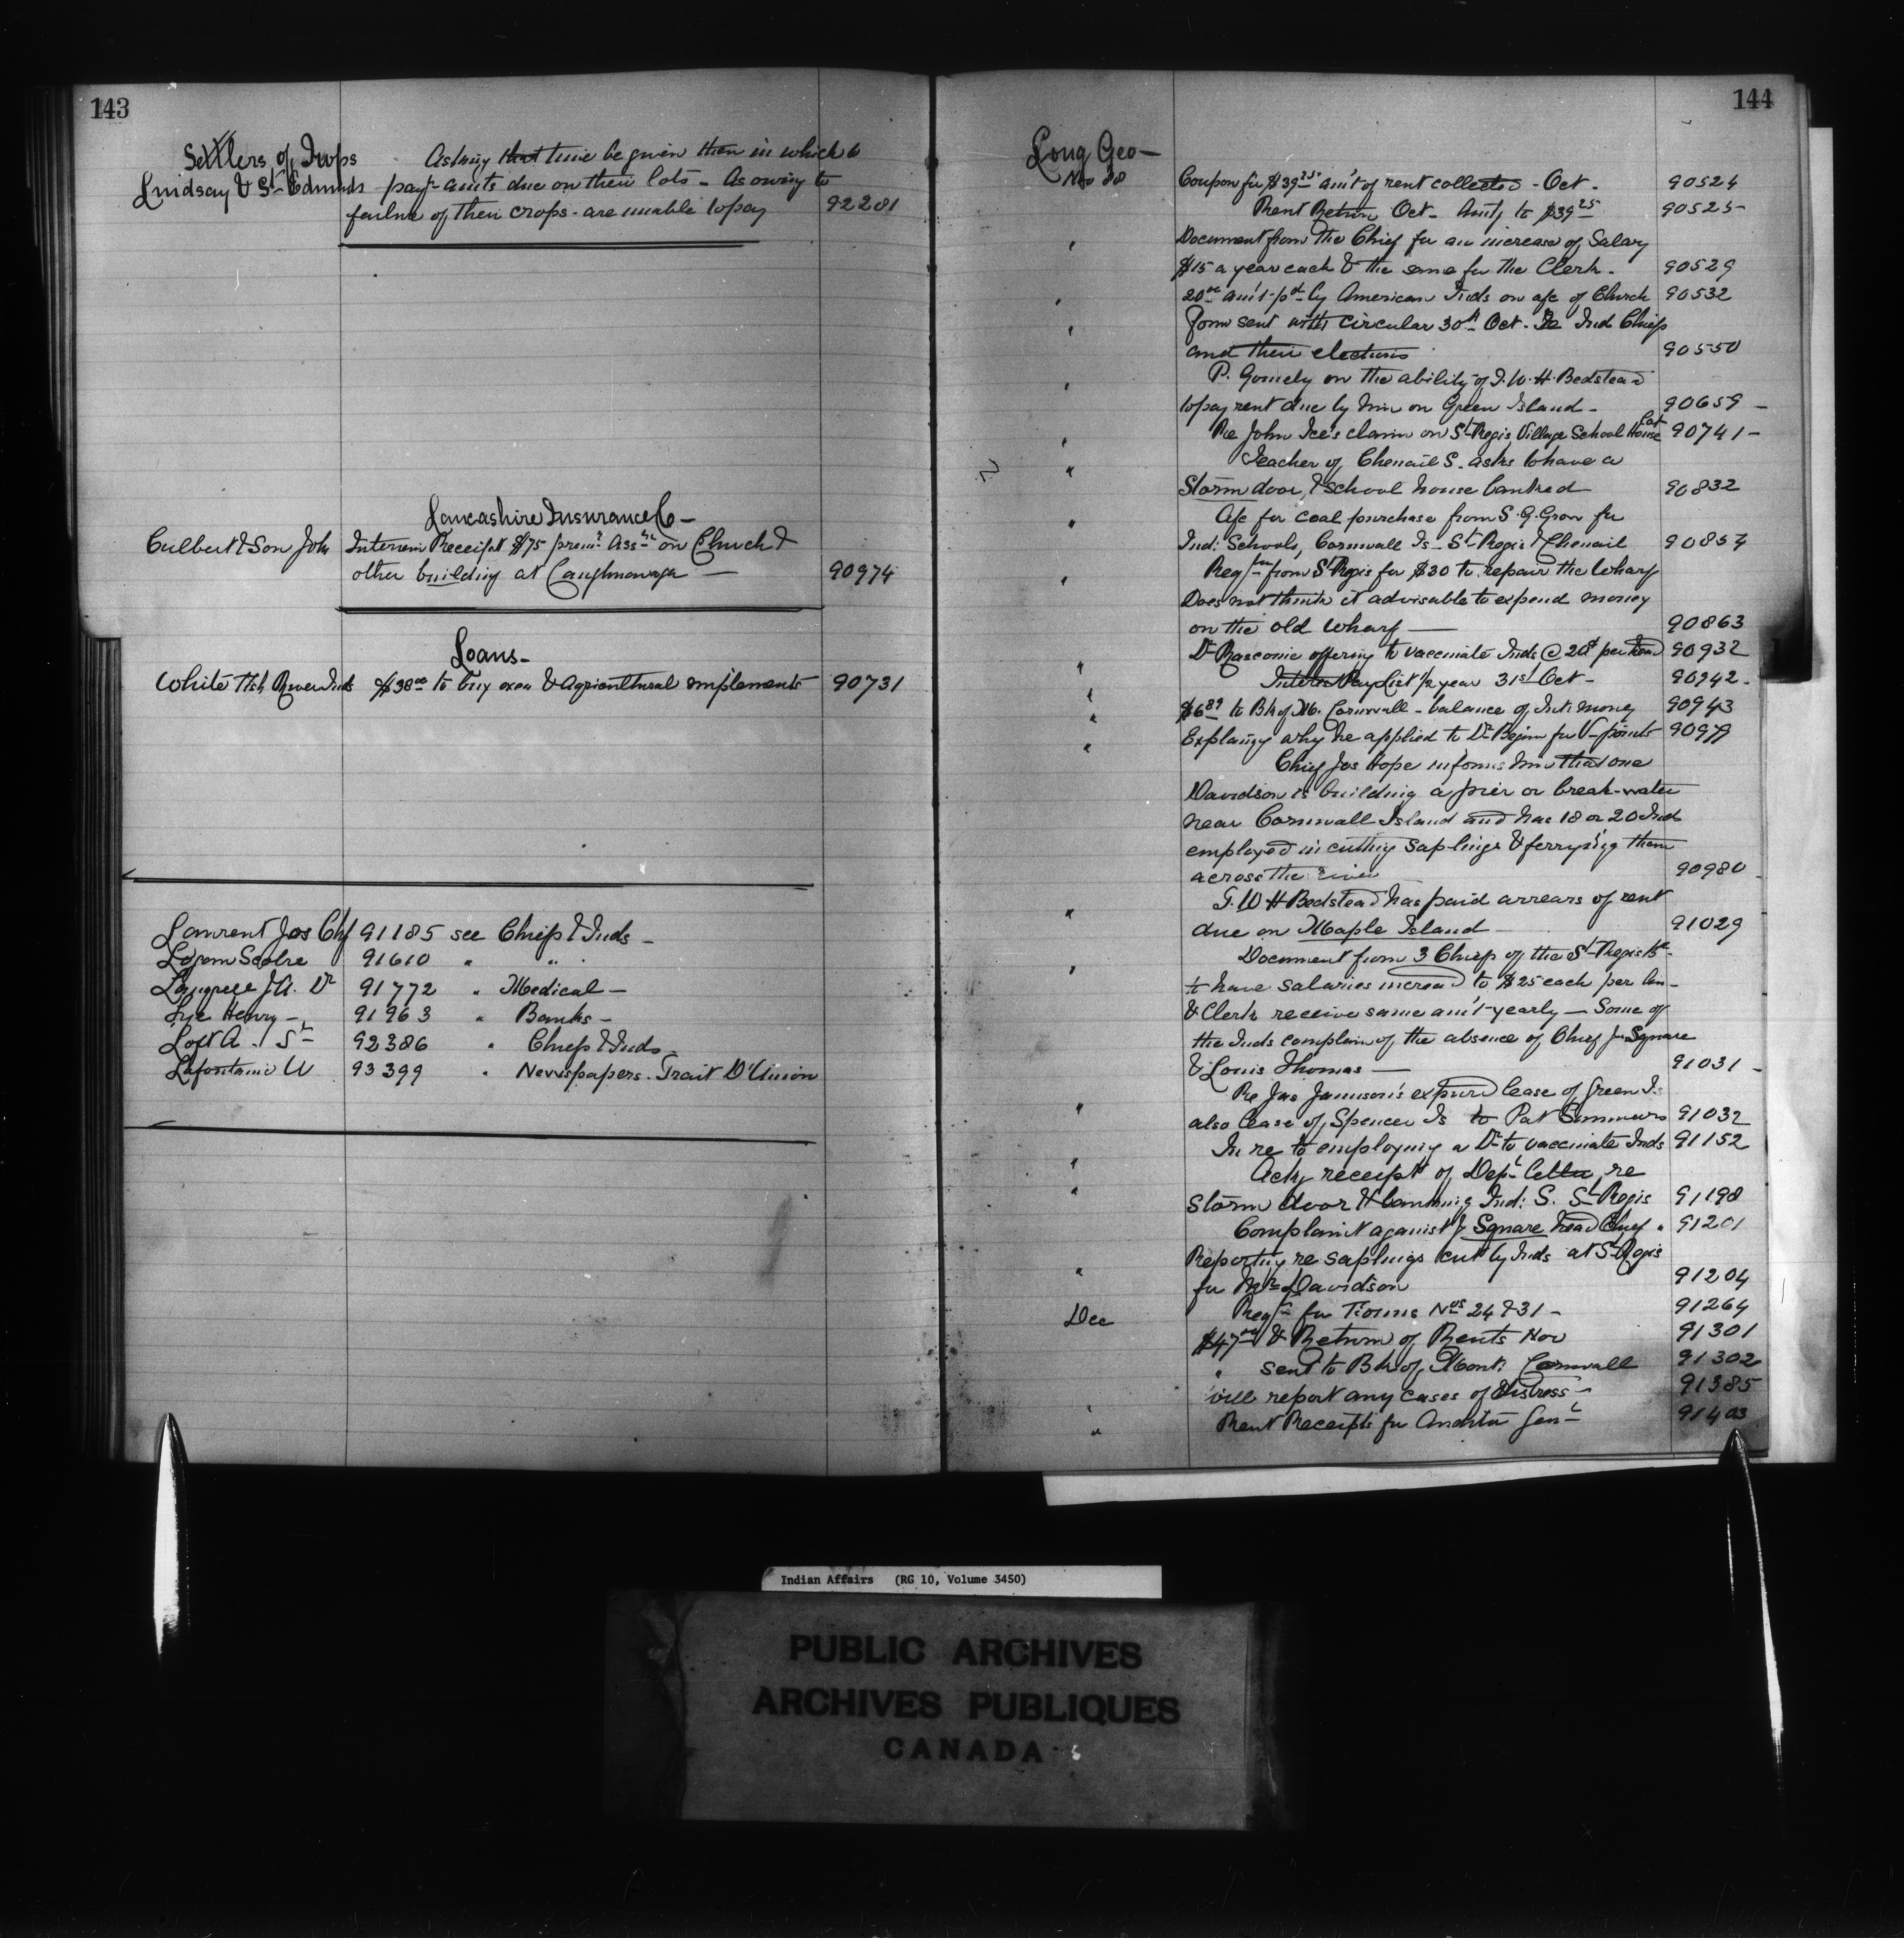 143
Settlers of Twps Asking that time be given them in which to
Lindsay & St Edmunds pay amts due on their lots - As owing to
failure of their crops - are unable to pay 92281
Lancashire Insurance Co -
Culbert & Son John Interim Receipt $75 prem. Assce on Church &
other building at Caughnawaga — 90974
Loans -
White Fish River Inds $38 00 to buy oxen & Agricultural implements 90731
Laurent Jos Chf 91185 see Chiefs & Inds -
91610 " "
J.A. Dr 91772 " Medical -
Lye Henry - 91963 " Banks -
Loft A. 92386 " Chiefs & Inds
Lafontaine U 93399 " Newspapers. Trait D'Union
144
Long Geo -
Nov 88 Coupon for $39 25 am't of rent collected - Oct. 90524
Rent Return Oct - Amtg to $39 25 90525
" Document from the Chiefs for an increase of Salary
$15 a year each & the same for the Clerk. 90529
" 20 00 am't pd by American Inds on a/c of Church 90532
" Form sent with circular 30th Oct. Re Ind Chiefs
and their elections 90550
" P. Gormely on the ability of J.W.H. Bedstead
to pay rent due by him on Green Island - 90659 -
" Re John Ice's claim on St Regis Village School House Lot 90741 -
" Teacher of Chenail S. asks to have a
Storm door, & school house banked 90832
" A/c for coal purchase from S.G. Grow for
Ind: Schools, Cornwall Is - St Regis & Chenail 90854
" Reqn from St Regis for $30 to repair the Wharf
Does not think it advisable to expend money
on the old wharf — 90863
" Dr offering to vaccinate Inds @ 20¢ per head 90932
" Interest Pay List 1/2 year 31st Oct - 90942 -
" $6 89 to Bk of M. Cornwall - balance of Int: money 90943
" Explaing why he applied to Dr for V-points 90979
Chief Jos Hope informs him that one
Davidson is building a pier or break-water
near Cornwall Island and has 18 or 20 Ind
employed in cutting saplings & ferrying them
across the river 90980 -
" J.W.H Bedstead has paid arrears of rent
due on Maple Island 91029
" Document from 3 Chiefs of the St Regis Bd -
to have salaries increased to $25 each per An -
& Clerk receive same am't yearly — Some of
the Inds complain of the absence of Chief Square
& Louis Thomas — 91031 -
" Re Jas Jamieson's expired lease of Green Is
also lease of Spencer Is to Pat Simmons 91032
" In re to employing a Dr to vaccinate Inds 91152
" Ackg receipt of Dept letter, re
storm door & banking Ind: S. St Regis 91198
Complaint against Square head Chief " 91201
" Reporting re saplings cut by Inds at St Regis
for Mr Davidson 91204
Dec Reqn for Forms Nos 24 & 31 - 91264
$47 00 & Return of Rents Nov 91301
" sent to Bk of Mont: Cornwall 91302
" will report any cases of distress - 91385
" Rent Receipts for Auditor Genl 91403
Indian Affairs (RG 10, Volume 3450)
PUBLIC ARCHIVES
ARCHIVES PUBLIQUES
CANADA